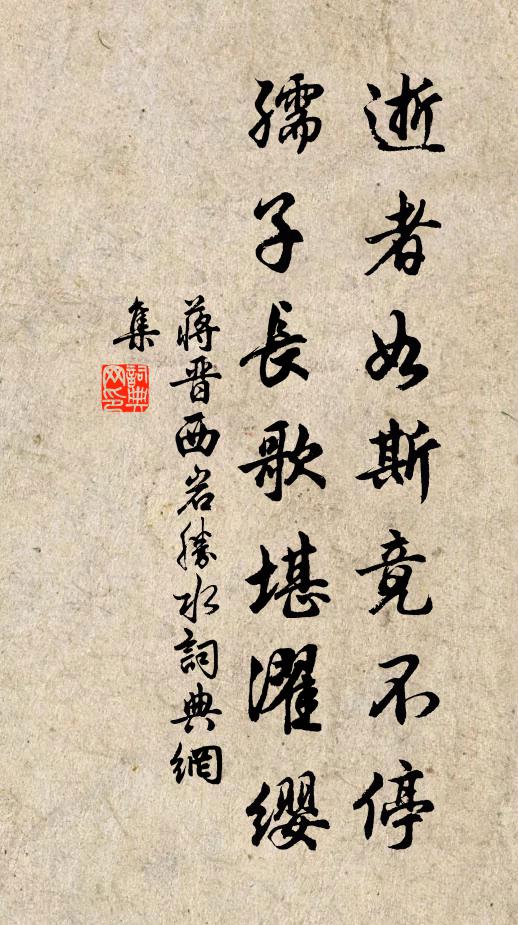 逝者如斯竟不停
孺子長歌堪濯纓
蔣晋西岩勝水詞典網
集
詞典網印